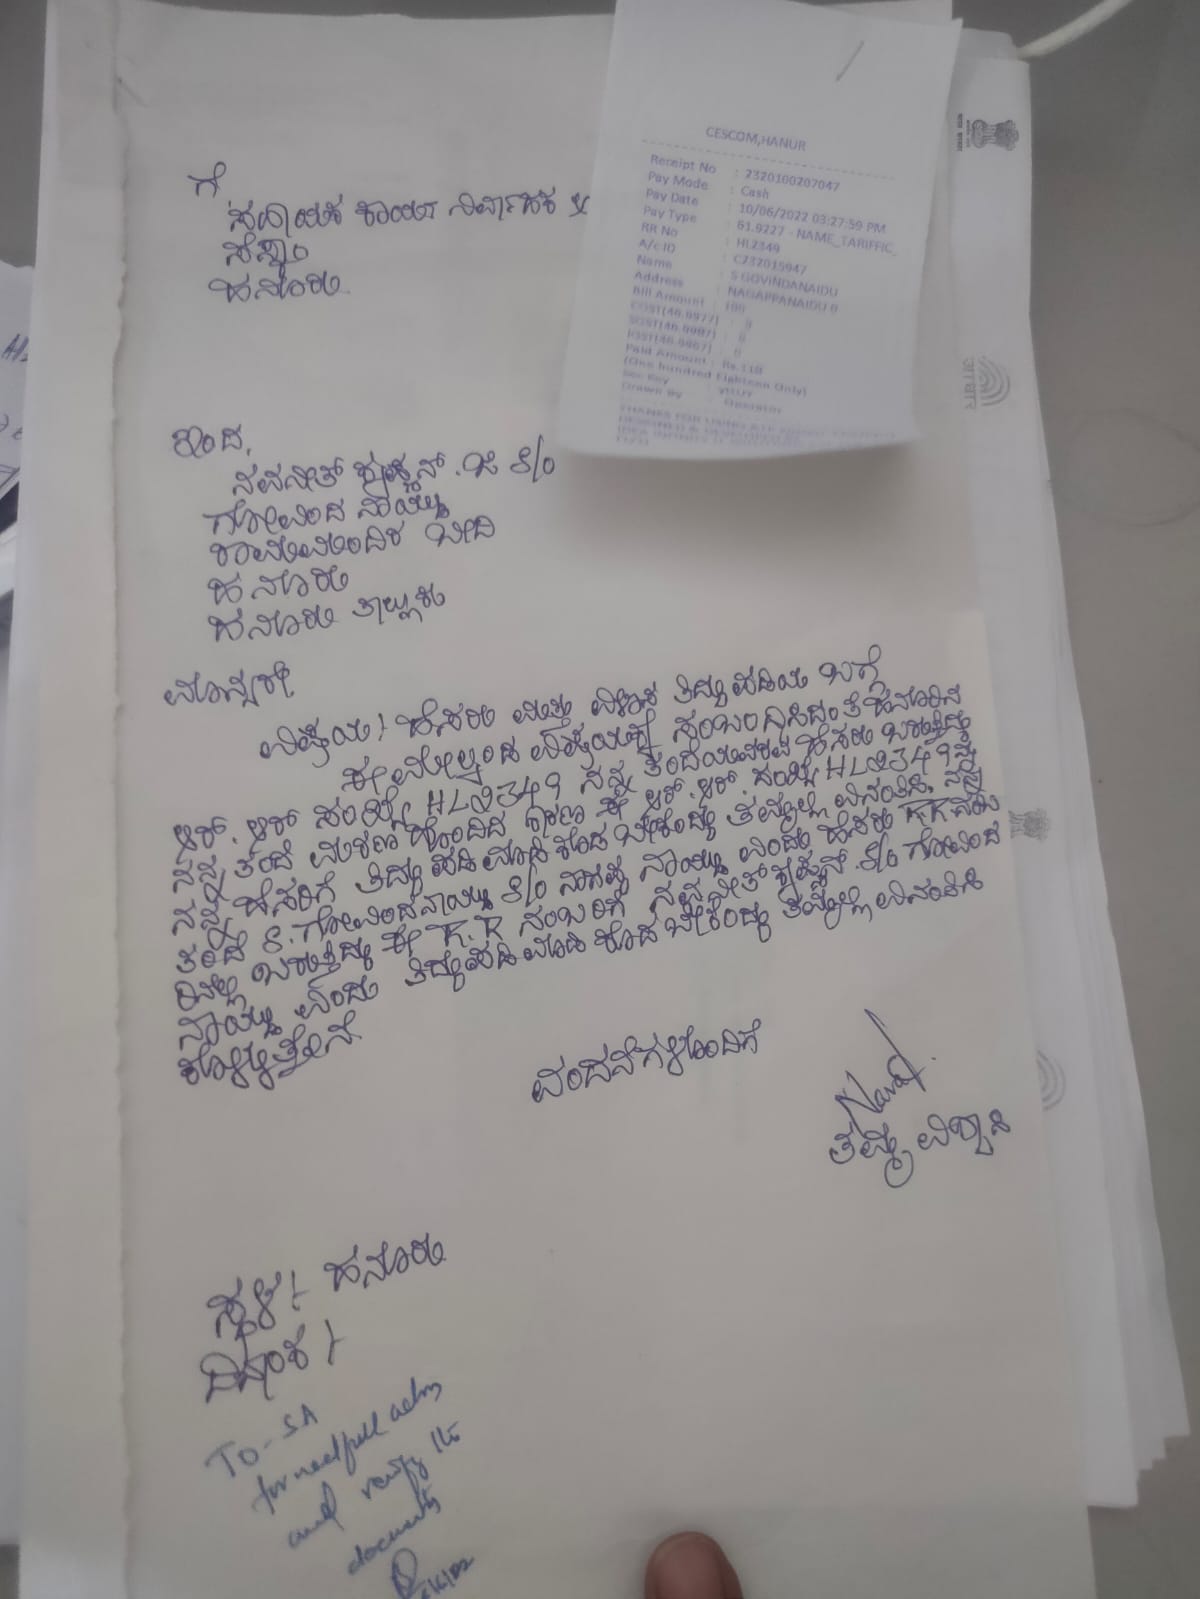 CESCOM,HANUR
Receipt No : 2320100207047
Pay Mode : Cash
Pay Date : 10/06/2022 03:27:59 PM
Pay Type : 61.9227 - NAME_TARIFFIC_
RR No : HL2349
A/c ID : C232015947
Name : S GOVINDANAIDU
Address : NAGAPPANAIDU 0
Bill Amount : 100
CGST(46.9977) : 9
SGST(46.9987) : 9
IGST(46.9967) : 0
Paid Amount : Rs.118
(One hundred Eighteen Only)
Drawn By : Operator
ಗೆ
ಸಹಾಯಕ ಕಾರ್ಯ ನಿರ್ವಾಹಕ
ಸೆಸ್ಕಾಂ
ಹನೂರು.
ಇಂದ,
ನವನೀತ್ ಕೃಷ್ಣನ್ . ಜಿ S/o
ಗೋವಿಂದ ನಾಯ್ಡು
ರಾಮಮಂದಿರ ಬೀದಿ
ಹನೂರು
ಹನೂರು ತಾಲ್ಲೂಕು
ಮಾನ್ಯರೇ,
ವಿಷಯ:- ಹೆಸರು ಮತ್ತು ವಿಳಾಸ ತಿದ್ದುಪಡಿಯ ಬಗ್ಗೆ
ಈ ಮೇಲ್ಕಂಡ ವಿಷಯಕ್ಕೆ ಸಂಬಂಧಿಸಿದಂತೆ ಹನೂರಿನ
ಆರ್. ಆರ್ ಸಂಖ್ಯೆ HL2349 ನನ್ನ ತಂದೆಯವರ ಹೆಸರು ಬರುತ್ತಿದ್ದು
ನನ್ನ ತಂದೆ ಮರಣ ಹೊಂದಿದ ಕಾರಣ ಈ ಆರ್. ಆರ್. ಸಂಖ್ಯೆ HL2349 ನ್ನು
ನನ್ನ ಹೆಸರಿಗೆ ತಿದ್ದುಪಡಿ ಮಾಡಿ ಕೊಡ ಬೇಕೆಂದು ತಮ್ಮಲ್ಲಿ ವಿನಂತಿಸಿ, ನನ್ನ
ತಂದೆ S. ಗೋವಿಂದನಾಯ್ಡು S/o ನಾಗಪ್ಪ ನಾಯ್ಡು ಎಂದು ಹೆಸರು R.R ನಂಬ
ರಿನಲ್ಲಿ ಬರುತ್ತಿದ್ದು ಈ R.R ನಂಬರಿಗೆ ನವನೀತ್ ಕೃಷ್ಣನ್ S/o ಗೋವಿಂದ
ನಾಯ್ಡು ಎಂದು ತಿದ್ದುಪಡಿ ಮಾಡಿ ಕೊಡ ಬೇಕೆಂದು ತಮ್ಮಲ್ಲಿ ವಿನಂತಿಸಿ
ಕೊಳ್ಳುತ್ತೇನೆ.
ವಂದನೆಗಳೊಂದಿಗೆ
ತಮ್ಮ ವಿಶ್ವಾಸಿ
ಸ್ಥಳ :- ಹನೂರು
ದಿನಾಂಕ :-
TO - SA
for needfull action
and verify the
documents
आधार